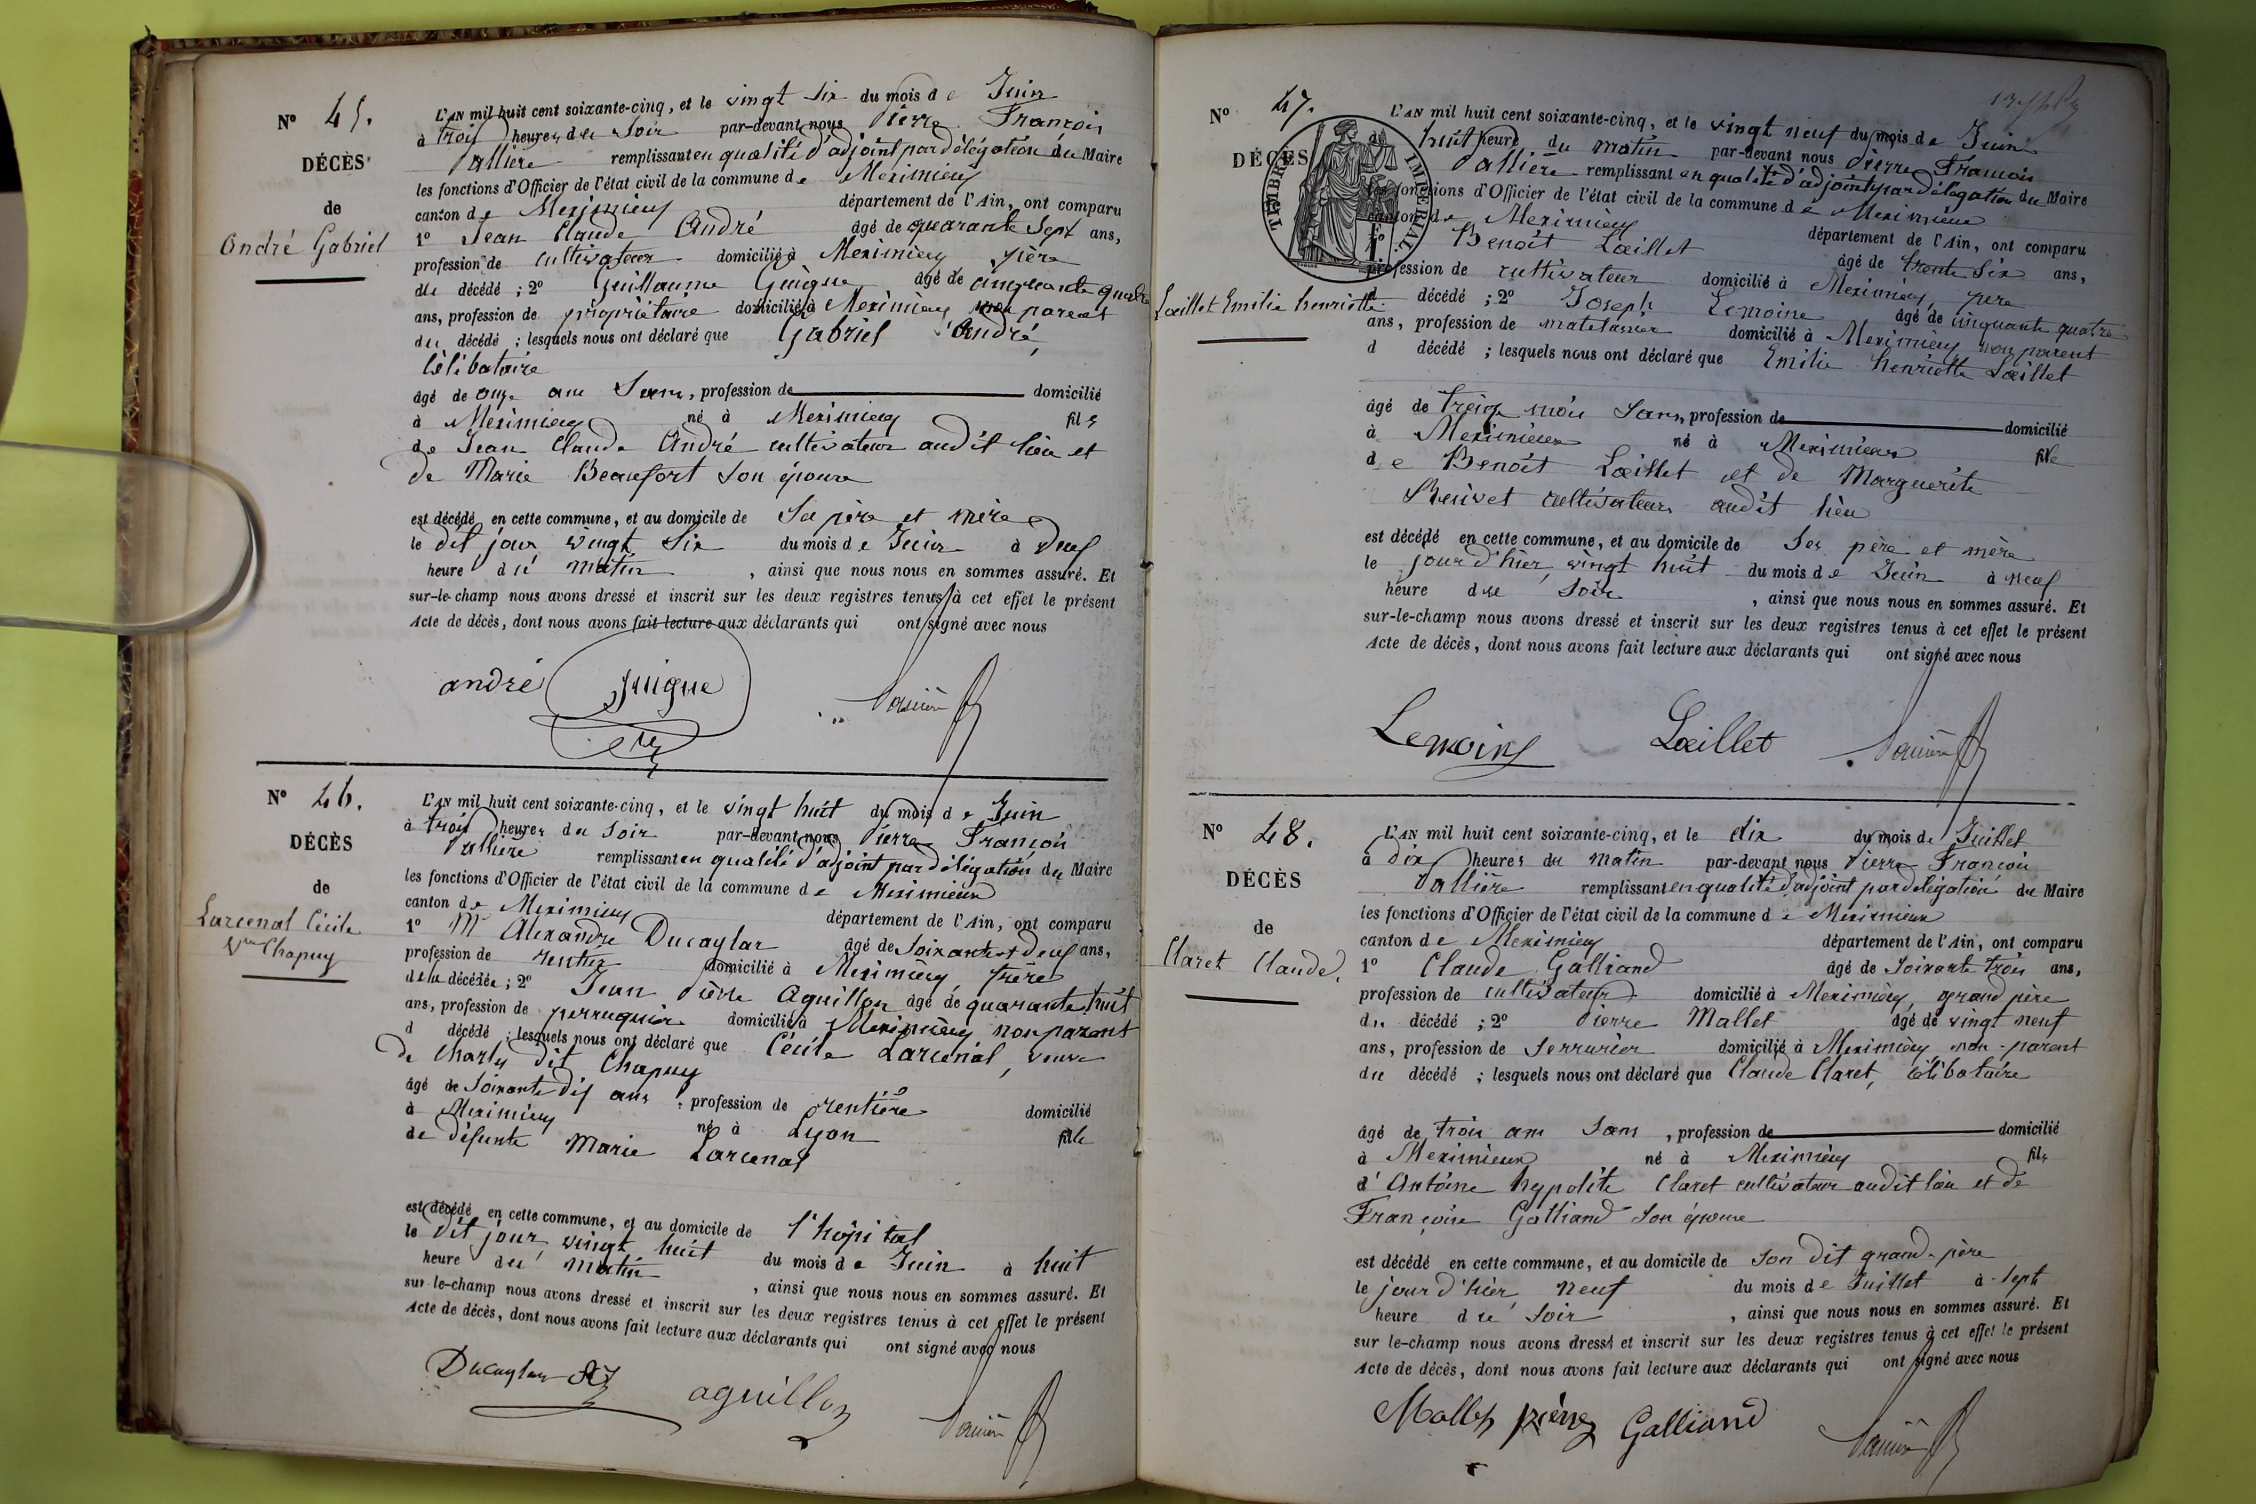 N° 45.
DÉCÈS
de
André Gabriel
L'AN mil huit cent soixante-cinq, et le vingt six du mois de Juin
à trois heures du soir par-devant nous Pierre François
Vallière remplissant en qualité d'adjoint par délégation du Maire
les fonctions d'Officier de l'état civil de la commune de Meximieux
canton de Meximieux département de l'Ain, ont comparu
1° Jean Claude André âgé de quarante sept ans,
profession de cultivateur domicilié à Meximieux père
du décédé ; 2° Guillaume Guigue âgé de cinquante quatre
ans, profession de propriétaire domicilié à Meximieux non parent
du décédé ; lesquels nous ont déclaré que Gabriel André,
célibataire
âgé de onze ans sans, profession de domicilié
à Meximieux né à Meximieux fils
de Jean Claude André cultivateur audit lieu et
de Marie Beaufort son épouse
est décédé en cette commune, et au domicile de ses père et mère
le dit jour vingt six du mois de Juin à neuf
heure du matin, ainsi que nous nous en sommes assuré. Et
sur-le-champ nous avons dressé et inscrit sur les deux registres tenus à cet effet le présent
Acte de décès, dont nous avons fait lecture aux déclarants qui ont signé avec nous
andré Guigue Vallière
N° 46.
DÉCÈS
de
Larcenal Cécile
Vve Chapuy
L'AN mil huit cent soixante-cinq, et le vingt huit du mois de Juin
à trois heures du soir par-devant nous Pierre François
Vallière remplissant en qualité d'adjoint par délégation du Maire
les fonctions d'Officier de l'état civil de la commune de Meximieux
canton de Meximieux département de l'Ain, ont comparu
1° Mr Alexandre Ducaylar âgé de soixante et neuf ans,
profession de rentier domicilié à Meximieux frère
de la décédée ; 2° Jean Pierre Aguillon âgé de quarante huit
ans, profession de perruquier domicilié à Meximieux non parent
d décédé ; lesquels nous ont déclaré que Cécile Larcenal, veuve
de Charles dit Chapuy
âgé de soixante dix ans, profession de rentière domicilié
à Meximieux né à Lyon fille
de défunte Marie Larcenal
est décédé en cette commune, et au domicile de l'hôpital
le dit jour vingt huit du mois de Juin à huit
heure du matin, ainsi que nous nous en sommes assuré. Et
sur-le-champ nous avons dressé et inscrit sur les deux registres tenus à cet effet le présent
Acte de décès, dont nous avons fait lecture aux déclarants qui ont signé avec nous
Ducaylar aguillon Vallière
N° 47.
DÉCÈS
TIMBRE IMPÉRIAL
Lœillet Emilie henriette
L'AN mil huit cent soixante-cinq, et le vingt neuf du mois de Juin
huit heure du matin par-devant nous Pierre François
Vallière remplissant en qualité d'adjoint par délégation du Maire
les fonctions d'Officier de l'état civil de la commune de Meximieux
canton de Meximieux département de l'Ain, ont comparu
Benoît Lœillet âgé de trente six ans,
profession de cultivateur domicilié à Meximieux, père
d décédé ; 2° Joseph Lemoine âgé de cinquante quatre
ans, profession de matelassier domicilié à Meximieux non parent
d décédé ; lesquels nous ont déclaré que Emilie henriette Lœillet
âgé de treize mois sans, profession de domicilié
à Meximieux né à Meximieux fille
de Benoît Lœillet et de Marguerite
cultivateurs audit lieu
est décédé en cette commune, et au domicile de ses père et mère
le jour d'hier vingt huit du mois de Juin à neuf
heure du soir, ainsi que nous nous en sommes assuré. Et
sur-le-champ nous avons dressé et inscrit sur les deux registres tenus à cet effet le présent
Acte de décès, dont nous avons fait lecture aux déclarants qui ont signé avec nous
Lemoine Lœillet Vallière
N° 48.
DÉCÈS
de
Claret Claude
L'AN mil huit cent soixante-cinq, et le dix du mois de Juillet
à dix heures du matin par-devant nous Pierre François
Vallière remplissant en qualité d'adjoint par délégation du Maire
les fonctions d'Officier de l'état civil de la commune de Meximieux
canton de Meximieux département de l'Ain, ont comparu
1° Claude Galliand âgé de soixante trois ans,
profession de cultivateur domicilié à Meximieux, grand père
du décédé ; 2° Pierre Mallet âgé de vingt neuf
ans, profession de serrurier domicilié à Meximieux non-parent
du décédé ; lesquels nous ont déclaré que Claude Claret, célibataire
âgé de trois ans sans, profession de domicilié
à Meximieux né à Meximieux fils
d'Antoine hypolite Claret cultivateur audit lieu et de
Françoise Galliand son épouse
est décédé en cette commune, et au domicile de son dit grand-père
le jour d'hier neuf du mois de Juillet à sept
heure du soir, ainsi que nous nous en sommes assuré. Et
sur le-champ nous avons dressé et inscrit sur les deux registres tenus à cet effet le présent
Acte de décès, dont nous avons fait lecture aux déclarants qui ont signé avec nous
Mallet pierre Galliand Vallière